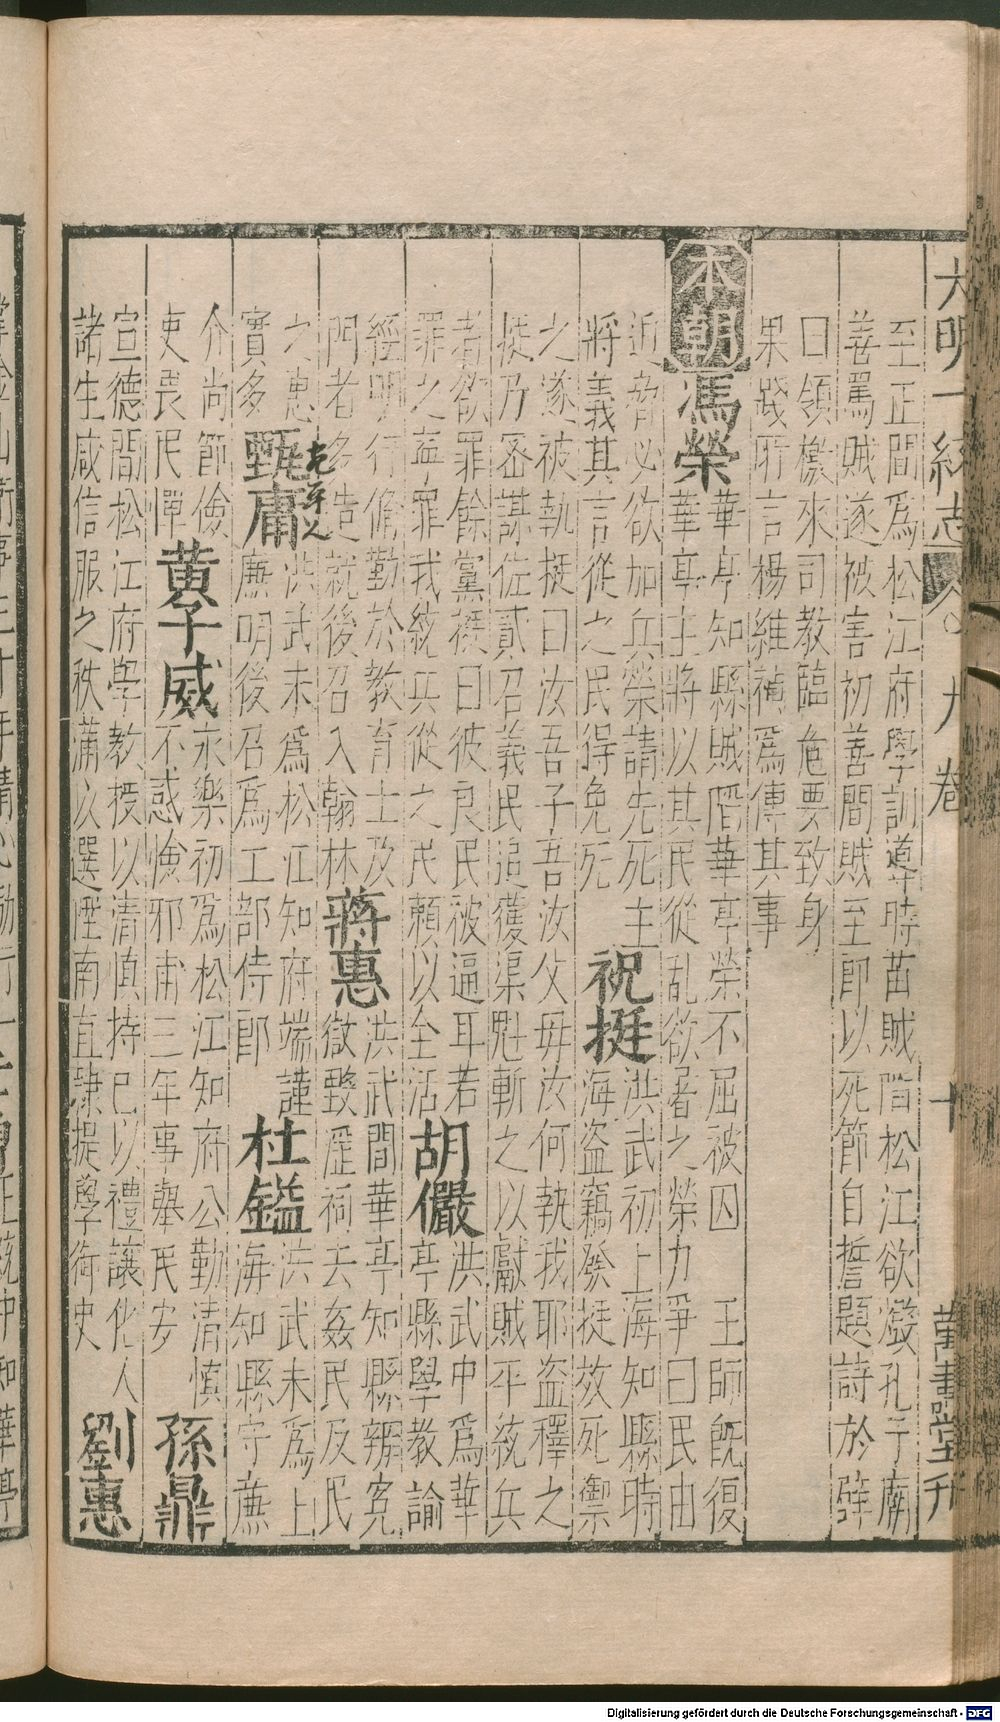 大明一統志 卷九 十 萬壽堂刊
至正間爲松江府學訓導時苗賊陷松江欲㷫孔子廟
善罵賊遂被害初善間賊至即以死節自誓題詩於壁
曰領檄來司教臨危要致身
果踐所言楊維禎爲傳其事
本朝馮榮華亭知縣賊陷華亭榮不屈被囚 王師旣復
華亭主將以其民從乱欲誅之榮力爭曰民由
近脅必欲加兵榮請先死主
將義其言從之民得免死
祝挺洪武初上海知縣時
海盗竊發挺效死禦
之遂被執挺曰汝吾子吾汝父毋汝何執我耶盗釋之
挺乃密謀佐貳召義民追獲渠魁斬之以獻賊平統兵
者欲罪餘黨挺曰彼良民被逼耳若
罪之寧罪我統兵從之民頼以全活
胡儼洪武中爲華
亭縣學教諭
經明行脩勤於教育士及
門者多造就後召入翰林
蔣惠洪武間華亭知縣辨寃
徵毀淫祠去姦民及民
之惠
實多
甄庸洪武末爲松江知府端謹
廉明後召爲工部侍郎
杜鎰洪武末爲上
海知縣守㢘
介尚節儉
吏畏民憚
黄子威永樂初爲松江知府公勤清慎
不惑憸邪甫三年事舉民安
孫鼎
宣德間松江府學教授以清慎持已以禮讓化人
諸生咸信服之秩滿以選陞南直隸提學御史
劉惠
Digitalisierung gefördert durch die Deutsche Forschungsgemeinschaft - DFG